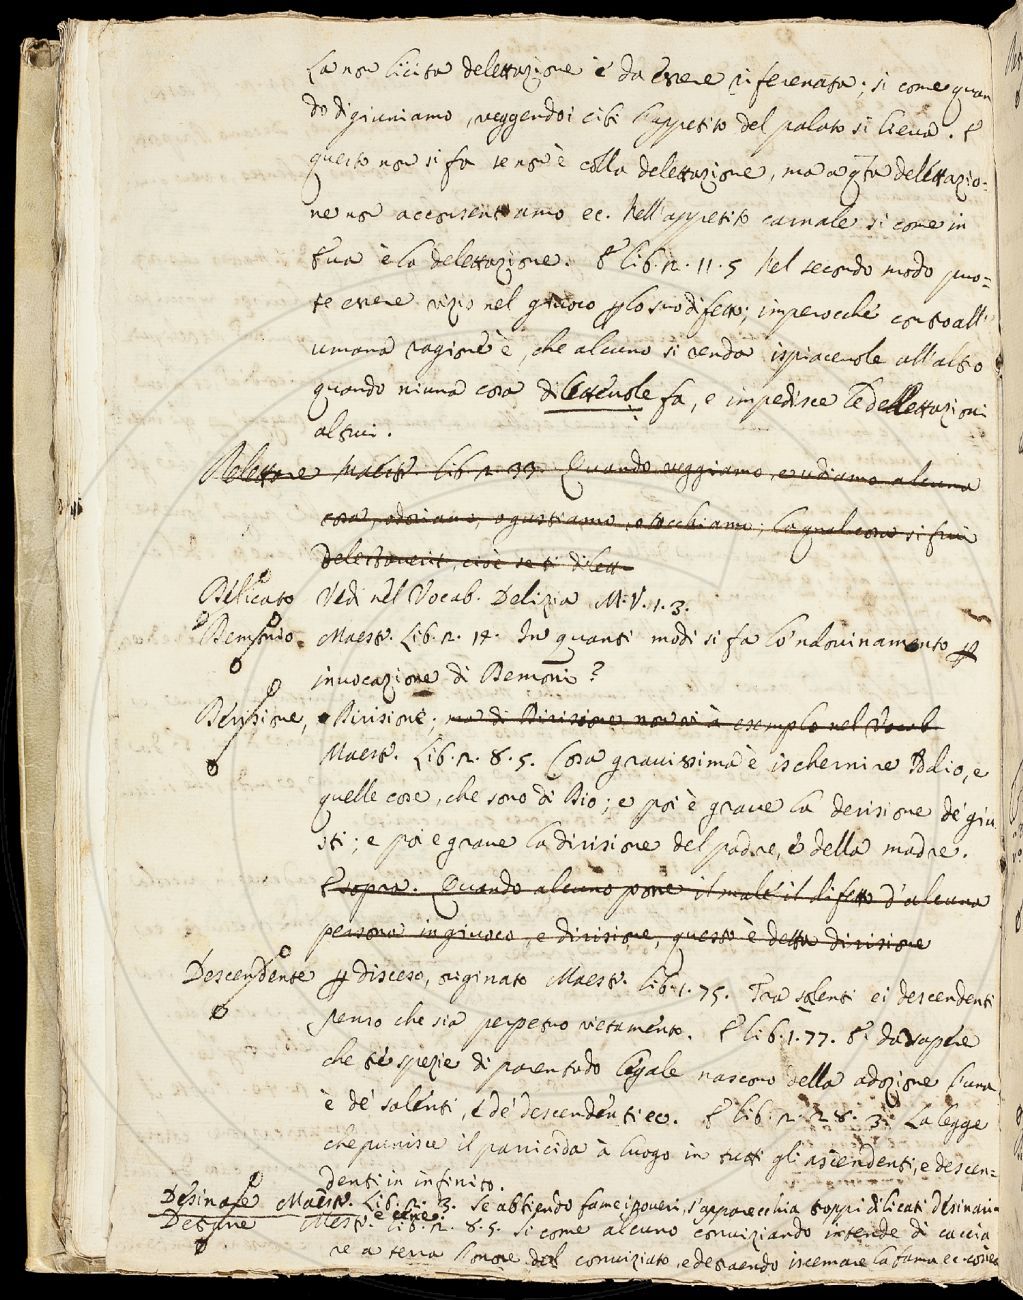 La non licita delettazione è da essere rifrenata; sì come quan
do digiuniamo, veggendo i cibi l'appetito del palato si lieva. E
questo non si fa se non è colla delettazione, ma a qta delettazio-
ne no acconsentiamo ec. Nell'appetito carnale sì come in
sua è la delettazione. E lib. 2. 11. 5 Nel secondo modo puo-
te essere vizio nel giuoco p lo suo difetto; imperocché contro all'
umana ragione è, che alcuno si renda ispiacevole all'altro
quando niuna cosa dilettevole fa, e impedisce le delettazioni
altrui.
Delettare Maest. lib. 2. 33. Quando veggiamo, e udiamo alcuna
cosa, odoriamo, o gustiamo, o tocchiamo; la qual cosa si
cioè se ti dilett
Delicato Vedi nel Vocab. Delizia M. V. 1. 3.
Demonio. Maest. Lib. 2. 14. In quanti modi si fa lo 'ndovinamento p
invocazione di Demoni?
Derisione, Dirisione; ma di Dirisione non vi à esemplo nel Vocab.
Maest. Lib. 2. 8. 5. Cosa gravissima è ischernire Idio, e
quelle cose, che sono di Dio; e poi è grave la derisione de' giu
sti; e poi e grave la dirisione del padre, e della madre.
E sopra. Quando alcuno pone il male il difetto d'alcuna
persona in giuoco, e dirisione, questo è detto dirisione
Descendente p disceso, originato Maest. lib. 1. 75. Tra salenti ei descendenti
penso che sia perpetuo vietamento. E lib. 1. 77. E da sapere
che tre spezie di parentado legale nascono della adozione l'una
è de' salenti, e de' descendenti ec. E lib. 2. 28. 3. La legge
che punisce il parricida à luogo in tutti gli ascendenti, e descen-
denti in infinito.
Desinare Maest. Lib. 2. 3. Se abbiendo fame i poveri, s'apparecchia troppi dilicati desinari
Mest. Lib. 2. 8. 5. Sì come alcuno conviziando intende di caccia
re a terra l'onore del conviziato, e detraendo iscemare la fama ec. così